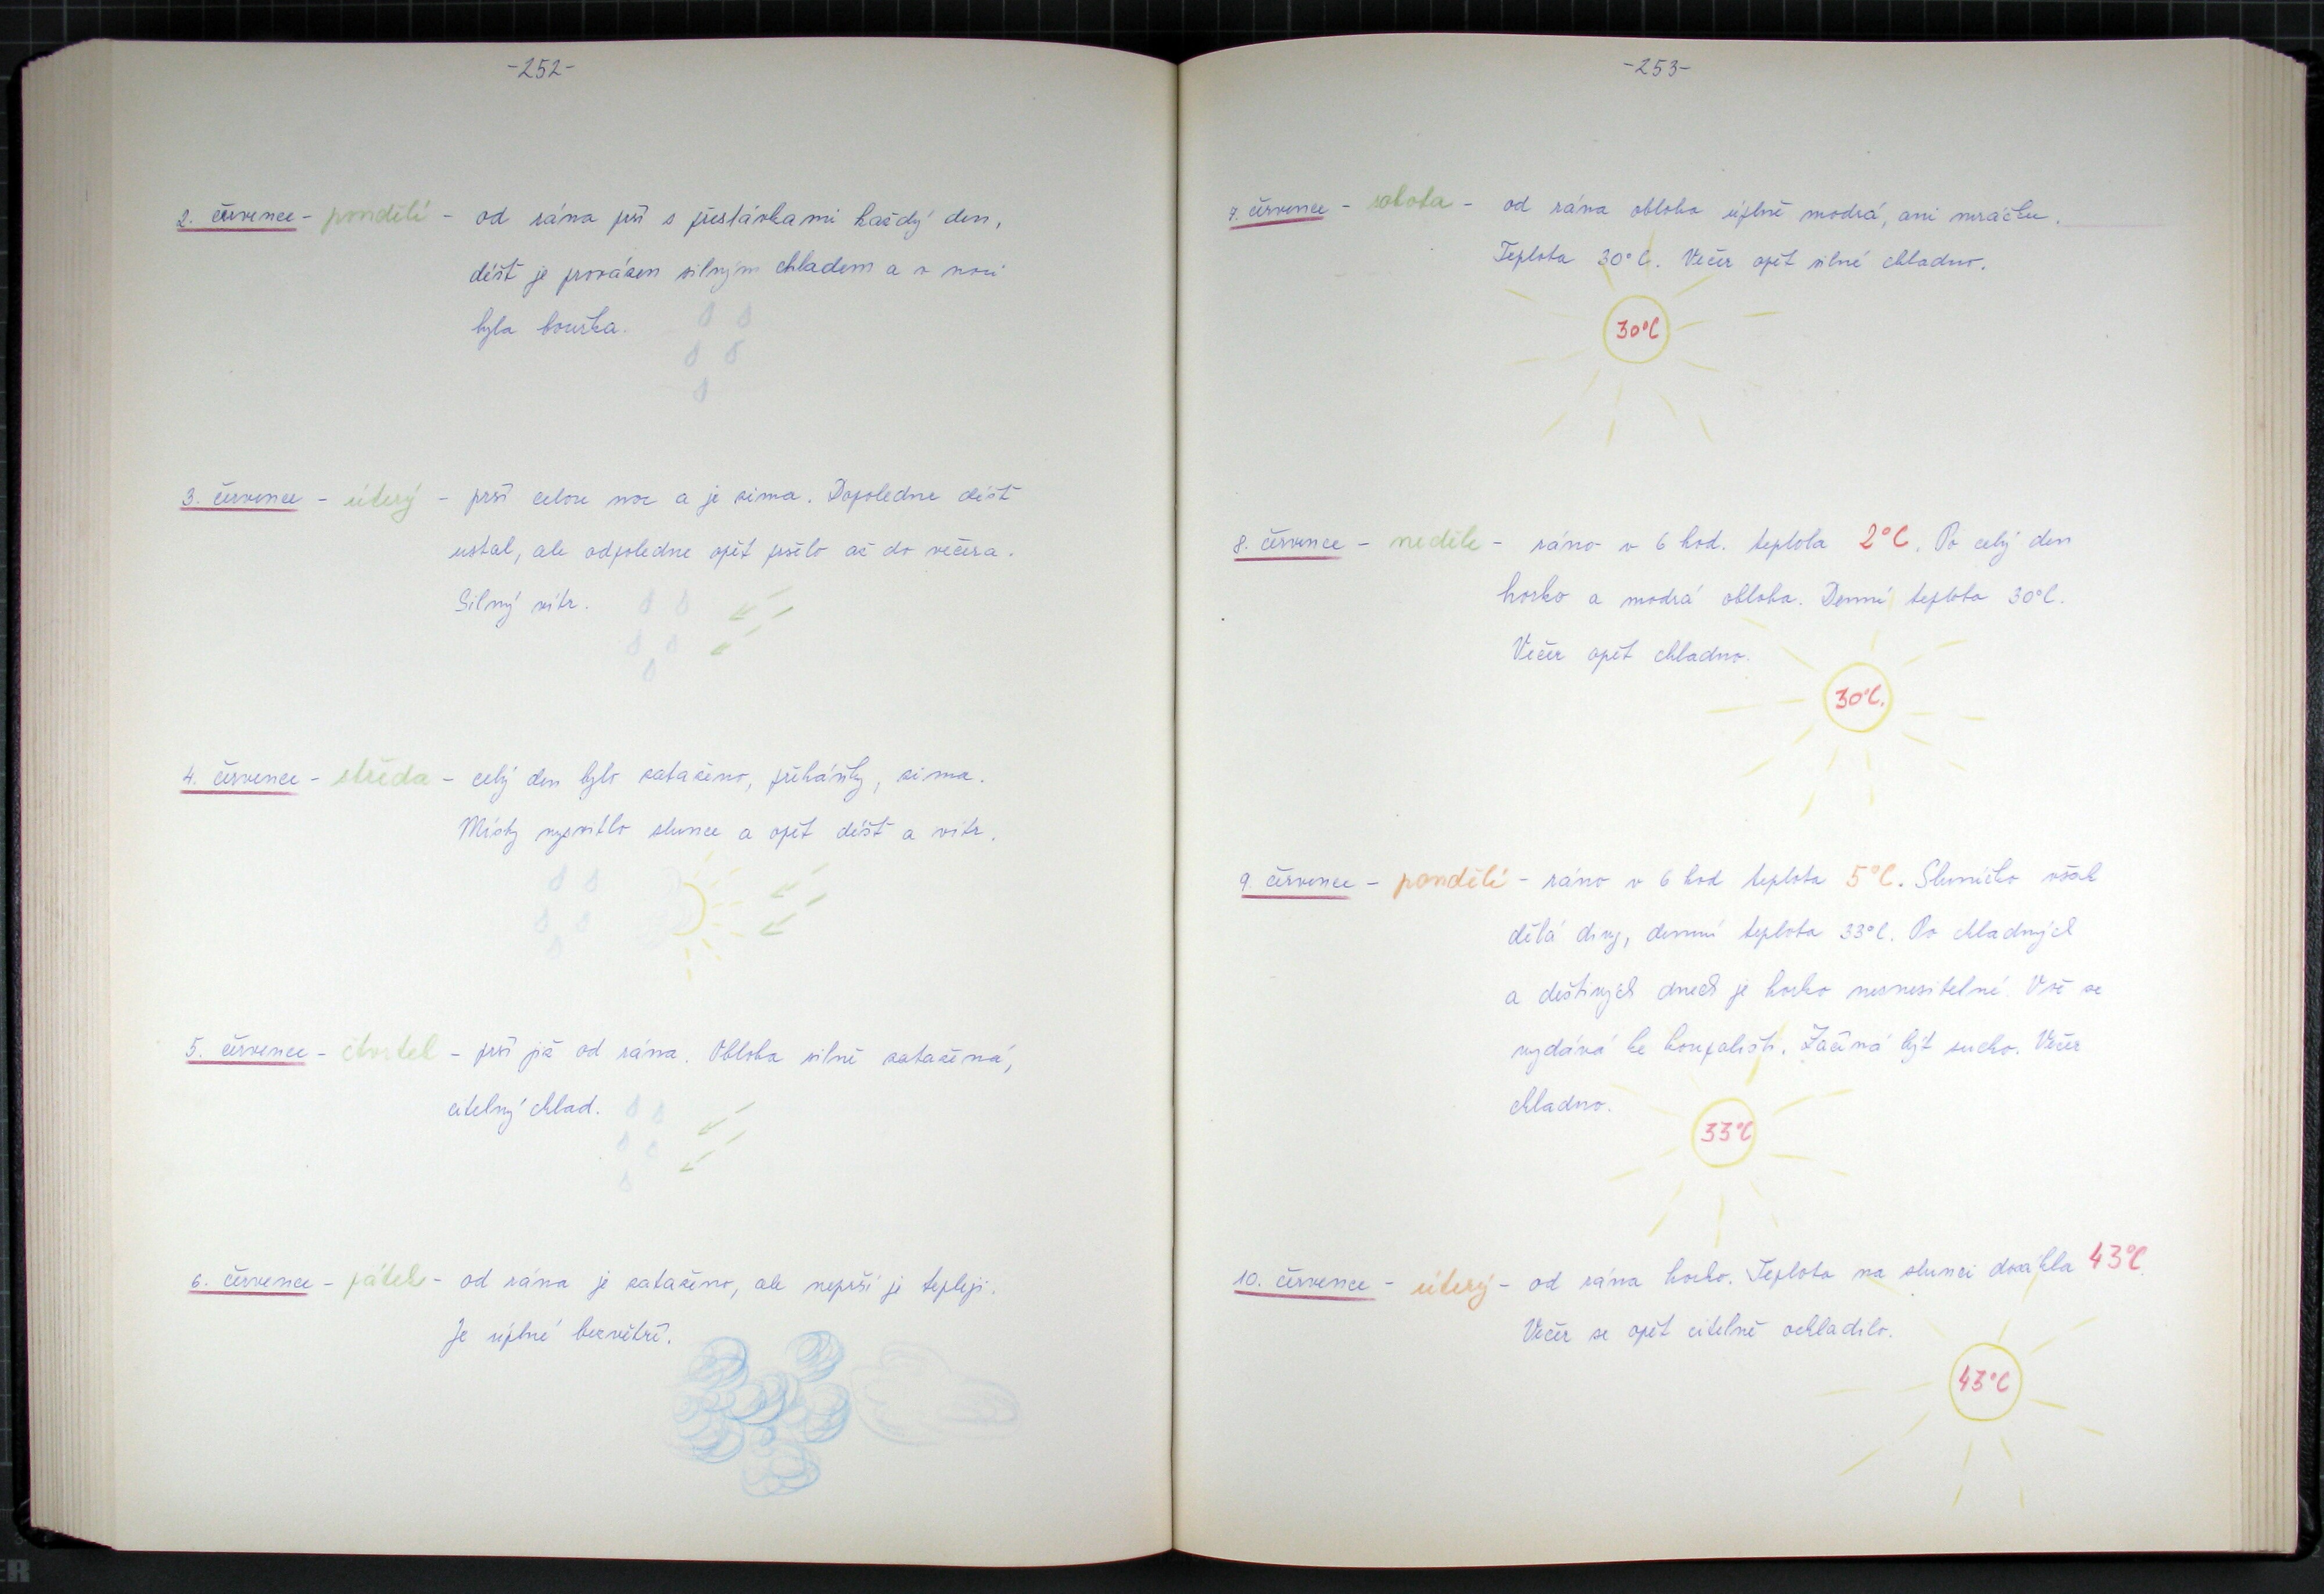 -252-
2. července - pondělí - od rána prší s přestávkami každý den,
déšť je provázen silným chladem a v noci
byla bouřka.
3. července - úterý - prší celou noc a je zima. Dopoledne déšť
ustal, ale odpoledne opět pršelo až do večera.
Silný vítr.
4. července - středa - celý den bylo zataženo, přeháňky, zima.
Místy vysvitlo slunce a opět déšť a vítr.
5. července - čtvrtek - prší již od rána. Obloha silně zatažená,
citelný chlad.
6. července - pátek - od rána je zataženo, ale neprší je tepleji.
Je úplné bezvětří.
-253-
7. července - sobota - od rána obloha úplně modrá, ani mráčku.
Teplota 30°C. Večer opět silné chladno.
30°C
8. července - neděle - ráno v 6 hod. teplota 2°C. Po celý den
horko a modrá obloha. Denní teplota 30°C.
Večer opět chladno.
30°C.
9. července - pondělí - ráno v 6 hod teplota 5°C. Sluníčko však
dělá divy, denní teplota 33°C. Po chladných
a deštivých dnech je horko nesnesitelné. Vše se
vydává ke koupališti. Začíná být sucho. Večer
chladno.
33°C
10. července - úterý - od rána horko. Teplota na slunci dosáhla 43°C.
Večer se opět citelně ochladilo.
43°C